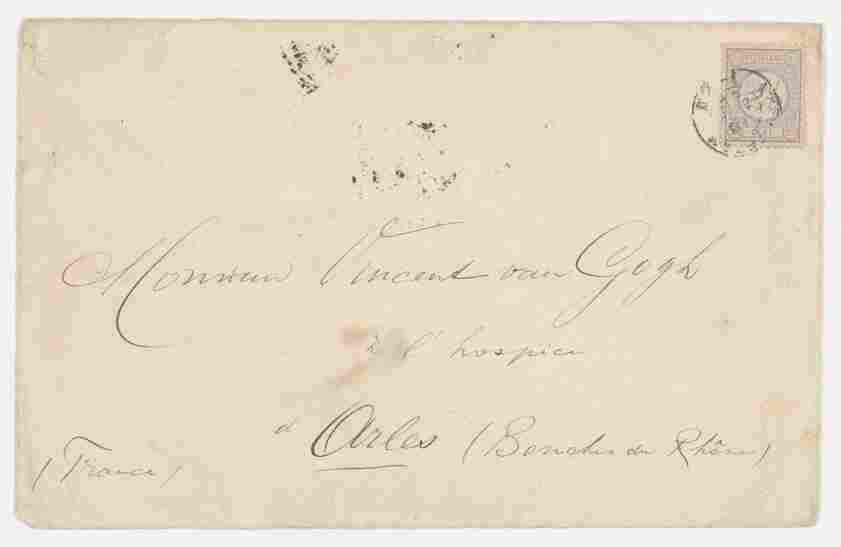 Monsieur Vincent van Gogh
à l'hospice
d'Arles (Bouches du Rhône)
(France)